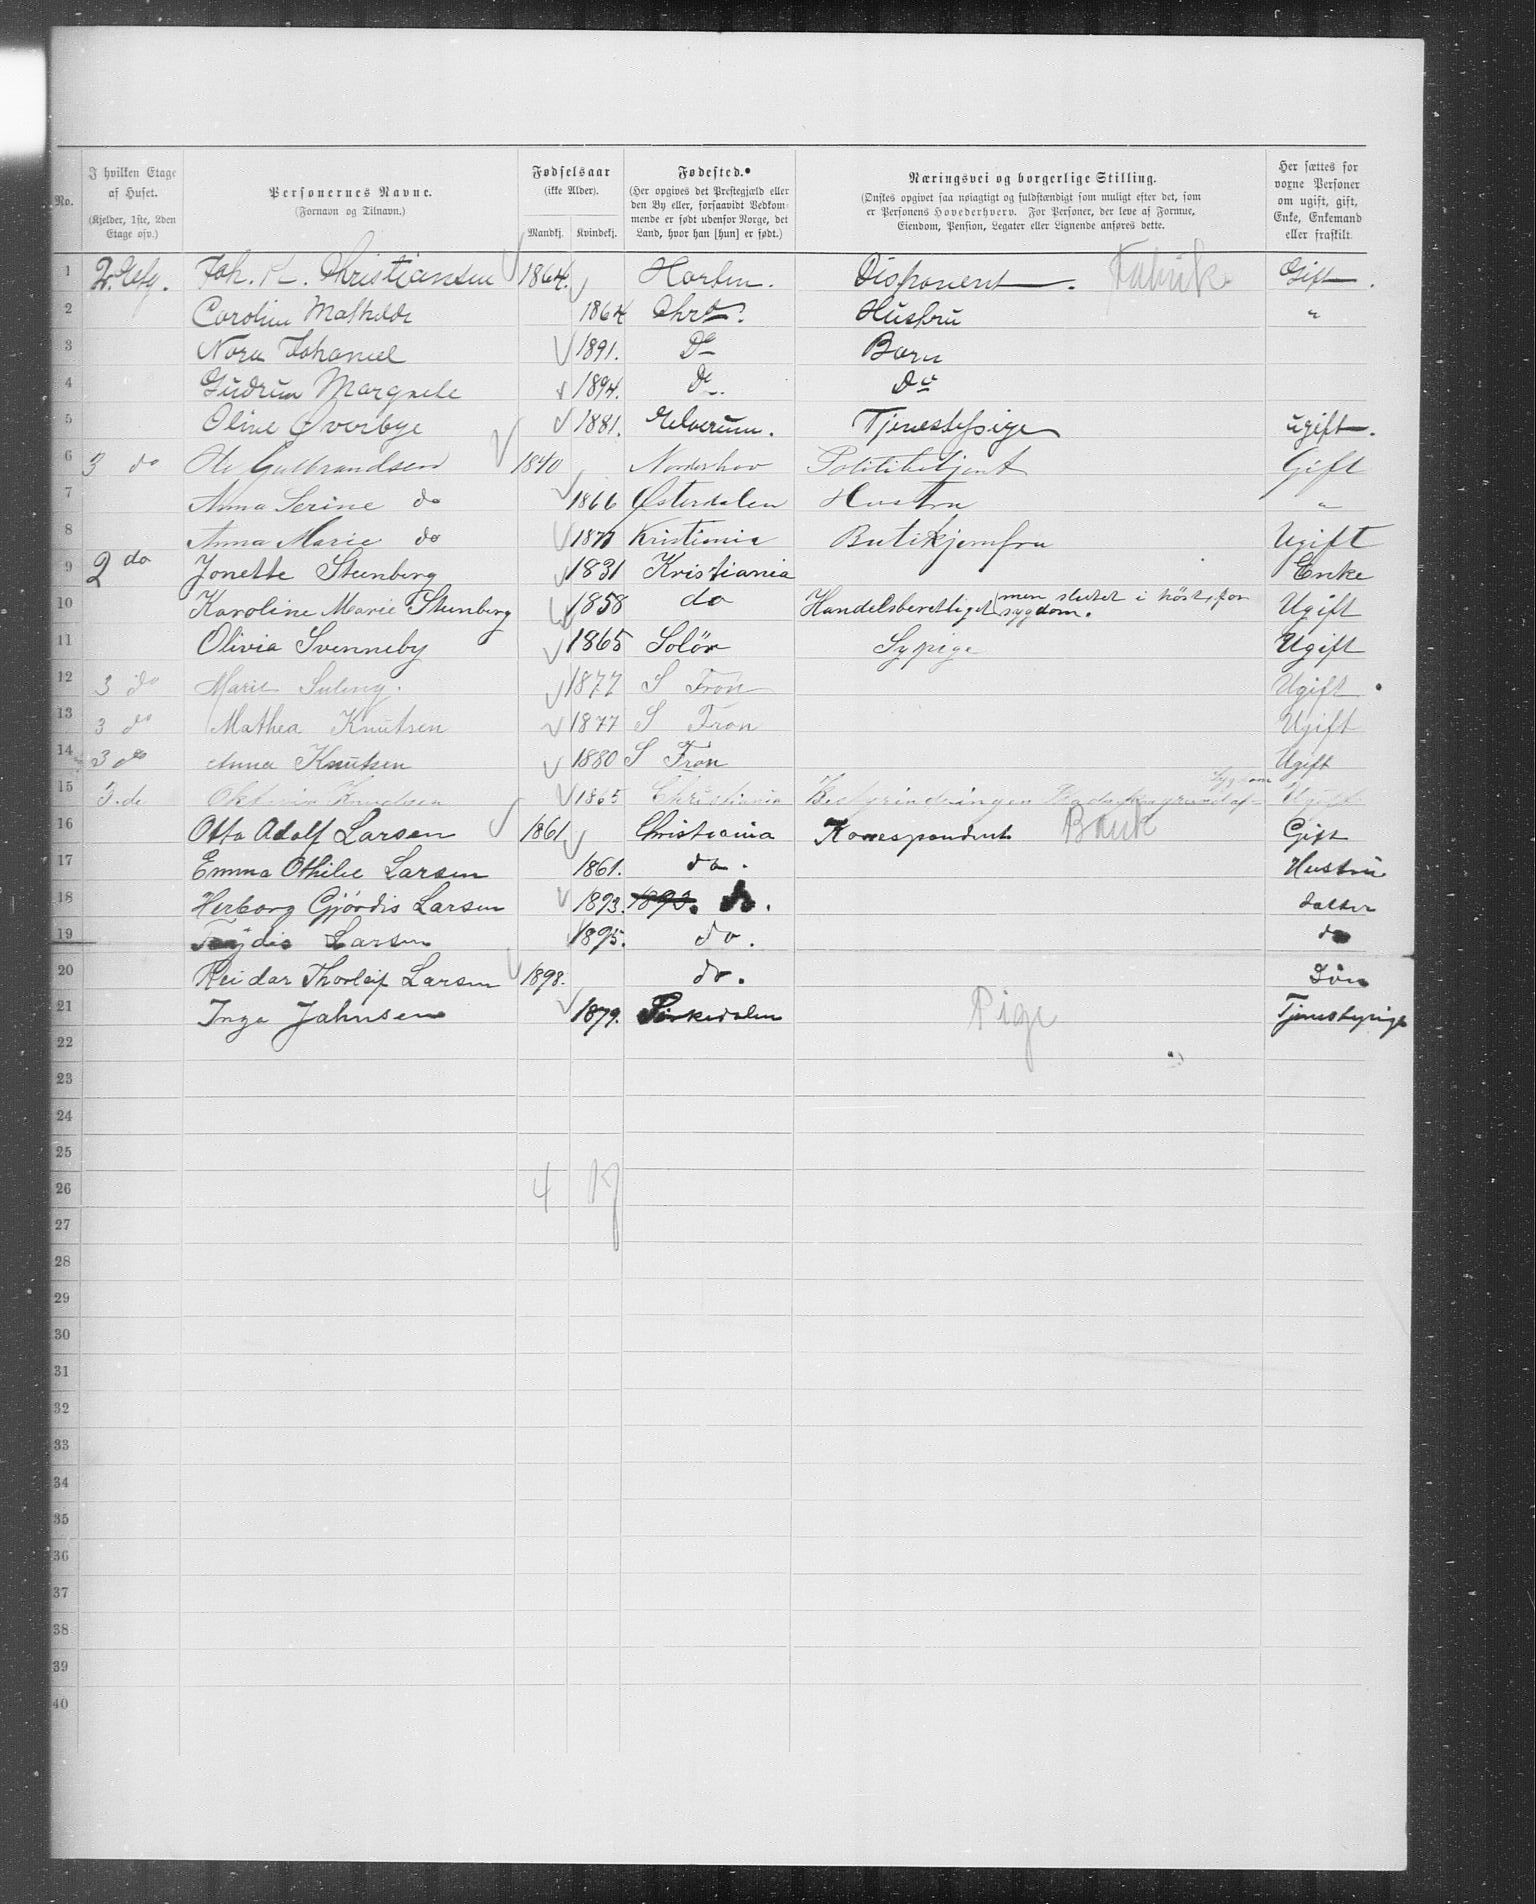 No.
I hvilken Etage af Huset.
(Kjelder, 1ste, 2den Etage osv.)
Personernes Navne.
(Fornavn og Tilnavn.)
Fødselsaar
(ikke Alder).
Mandkj. Kvindekj.
Fødested.
(Her opgives det Prestegjæld eller den By eller, forsaavidt Vedkommende er født udenfor Norge, det Land, hvor han [hun] er født.)
Næringsvei og borgerlige Stilling.
(Ønskes opgivet saa nøiagtigt og fuldstændigt som muligt efter det, som er Personens Hovederhverv. For Personer, der leve af Formue, Eiendom, Pension, Legater eller Lignende anføres dette.
Her sættes for voxne Personer om ugift, gift, Enke, Enkemand eller fraskilt
1 2. Joh. K. Christiansen 1864. Horten. Disponent. Fabrik Gift.
2 Caroline Mathilde 1864 Chra. Hustru "
3 Nora Johanne 1891. Do Barn
4 Gudrun Margrete 1894. Do Do
5 Oline Øverbye 1881. Elverum. Tjenestepige ugift.
6 3 do Ole Gulbrandsen 1840 Norderhov Politibetjent Gift
7 Anna Serine do 1866 Østerdalen Hustru "
8 Anna Marie do 1877 Kristiania Butikjomfru Ugift
9 2 do Jonette Steenberg 1831 Kristiania Enke
10 Karoline Marie Steenberg 1858 do Handelsberettiget (men sluttet i høst, for sygdom. Ugift
11 Olivia Svenneby 1865 Solör Sypige Ugift
12 3 do Marie 1877 S Fron Ugift.
13 3 do Mathea Knutsen 1877 S Fron Ugift
14 3 do Anna Knutsen 1880 S Fron Ugift
15 3. do Knudsen 1865 Christiania sygdom Ugift
16 Otto Adolf Larsen 1861 Christiania Korrespondent Bank Gift
17 Emma Othilie Larsen 1861. do. Hustru
18 Herborg Gjördis Larsen 1893. 1893. do. datter
19 Larsen 1895. do. do
20 Reidar Thorleif Larsen 1898. do. Sön
21 Inga Jahnsen 1879. Pige Tjenestepige
22
23
24
25
26 4 17
27
28
29
30
31
32
33
34
35
36
37
38
39
40